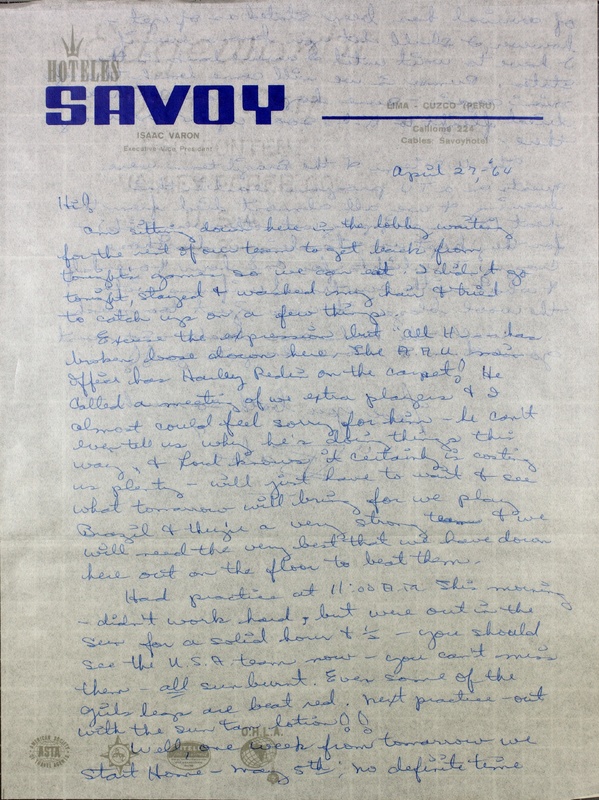 HOTELES
SAVOY
LIMA - CUZCO (PERU)
ISAAC VARON
Executive Vice President
Calloma 224
Cables: Savoyhotel
April 27, '64
Hi!
Am sitting down here in the lobby waiting
for the rest of our team to get back from
tonight's games so we can eat. I didn't go
tonight, stayed & washed my hair & tried
to catch up on a few things.
Excuse the expression but "all H--- has
broken loose down here. The A.A.U. main
officer has Harley Redin on the carpet! He
called a meeting of we extra players & I
almost could feel sorry for him - he can't
even tell us why he's doing things this
way, & Lord knows it certainly is costing
us plenty - will just have to wait & see
what tomorrow will bring for we play
Brazil & they're a very strong team & we
will need the very best that we have down
here out on the floor to beat them.
Had practice at 11:00 A.M. this morning
- didn't work hard, but were out in the
sun for a solid hour & ½ - you should
see the U.S.A team now - you can't miss
them - all sunburnt. Even some of the
girls legs are beat red. Next practice - out
with the sun tan lotion!!
Well, one week from tomorrow we
start Home - May 5th; no definite time
ASTA